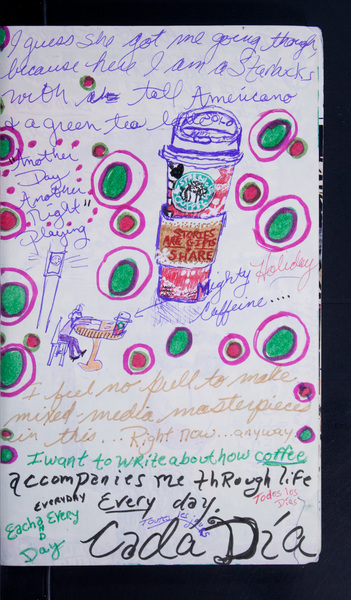 I guess she got me going though
because here I am a Starbucks
with a tall Americano
& a green tea latte
SOLO
"Another
Day
Another
Night"
playing
STORIES
ARE GIFTS
SHARE
Holiday
Mighty
Caffeine....
I feel no pull to make
mixed-media masterpieces
in this... Right now... anyway
I want to write about how coffee
accompanies me through life
EVERYDAY
Every day.
Todos los
Días
Each & Every
Day
Tous les jours
Cada Día